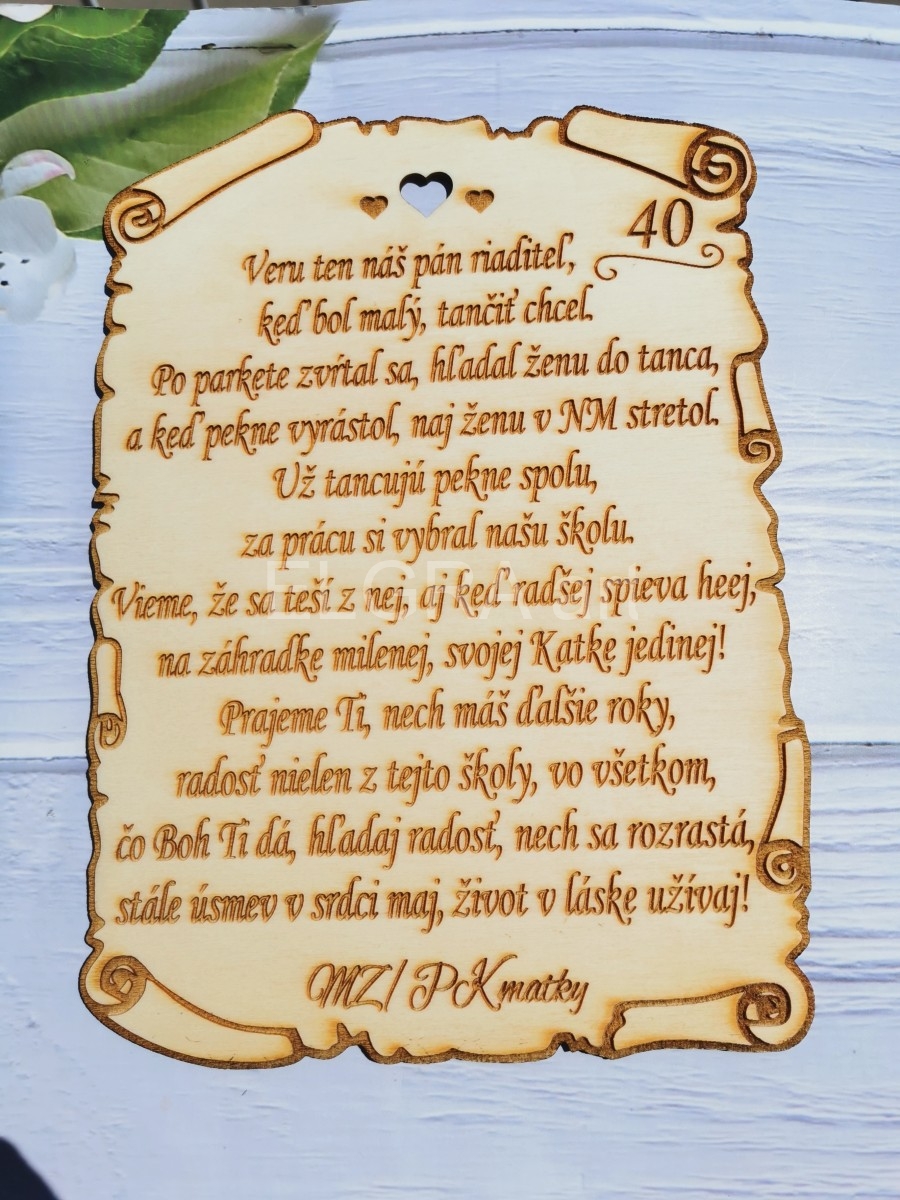 40
Veru ten náš pán riaditeľ,
keď bol malý, tančiť chcel.
Po parkete zvŕtal sa, hľadal ženu do tanca,
a keď pekne vyrástol, naj ženu v NM stretol.
Už tancujú pekne spolu,
za prácu si vybral našu školu.
Vieme, že sa teší z nej, aj keď radšej spieva heej,
na záhradke milenej, svojej Katke jedinej!
Prajeme Ti, nech máš ďalšie roky,
radosť nielen z tejto školy, vo všetkom,
čo Boh Ti dá, hľadaj radosť, nech sa rozrastá,
stále úsmev v srdci maj, život v láske užívaj!
MZ/ PK matky
ELGRA.sk